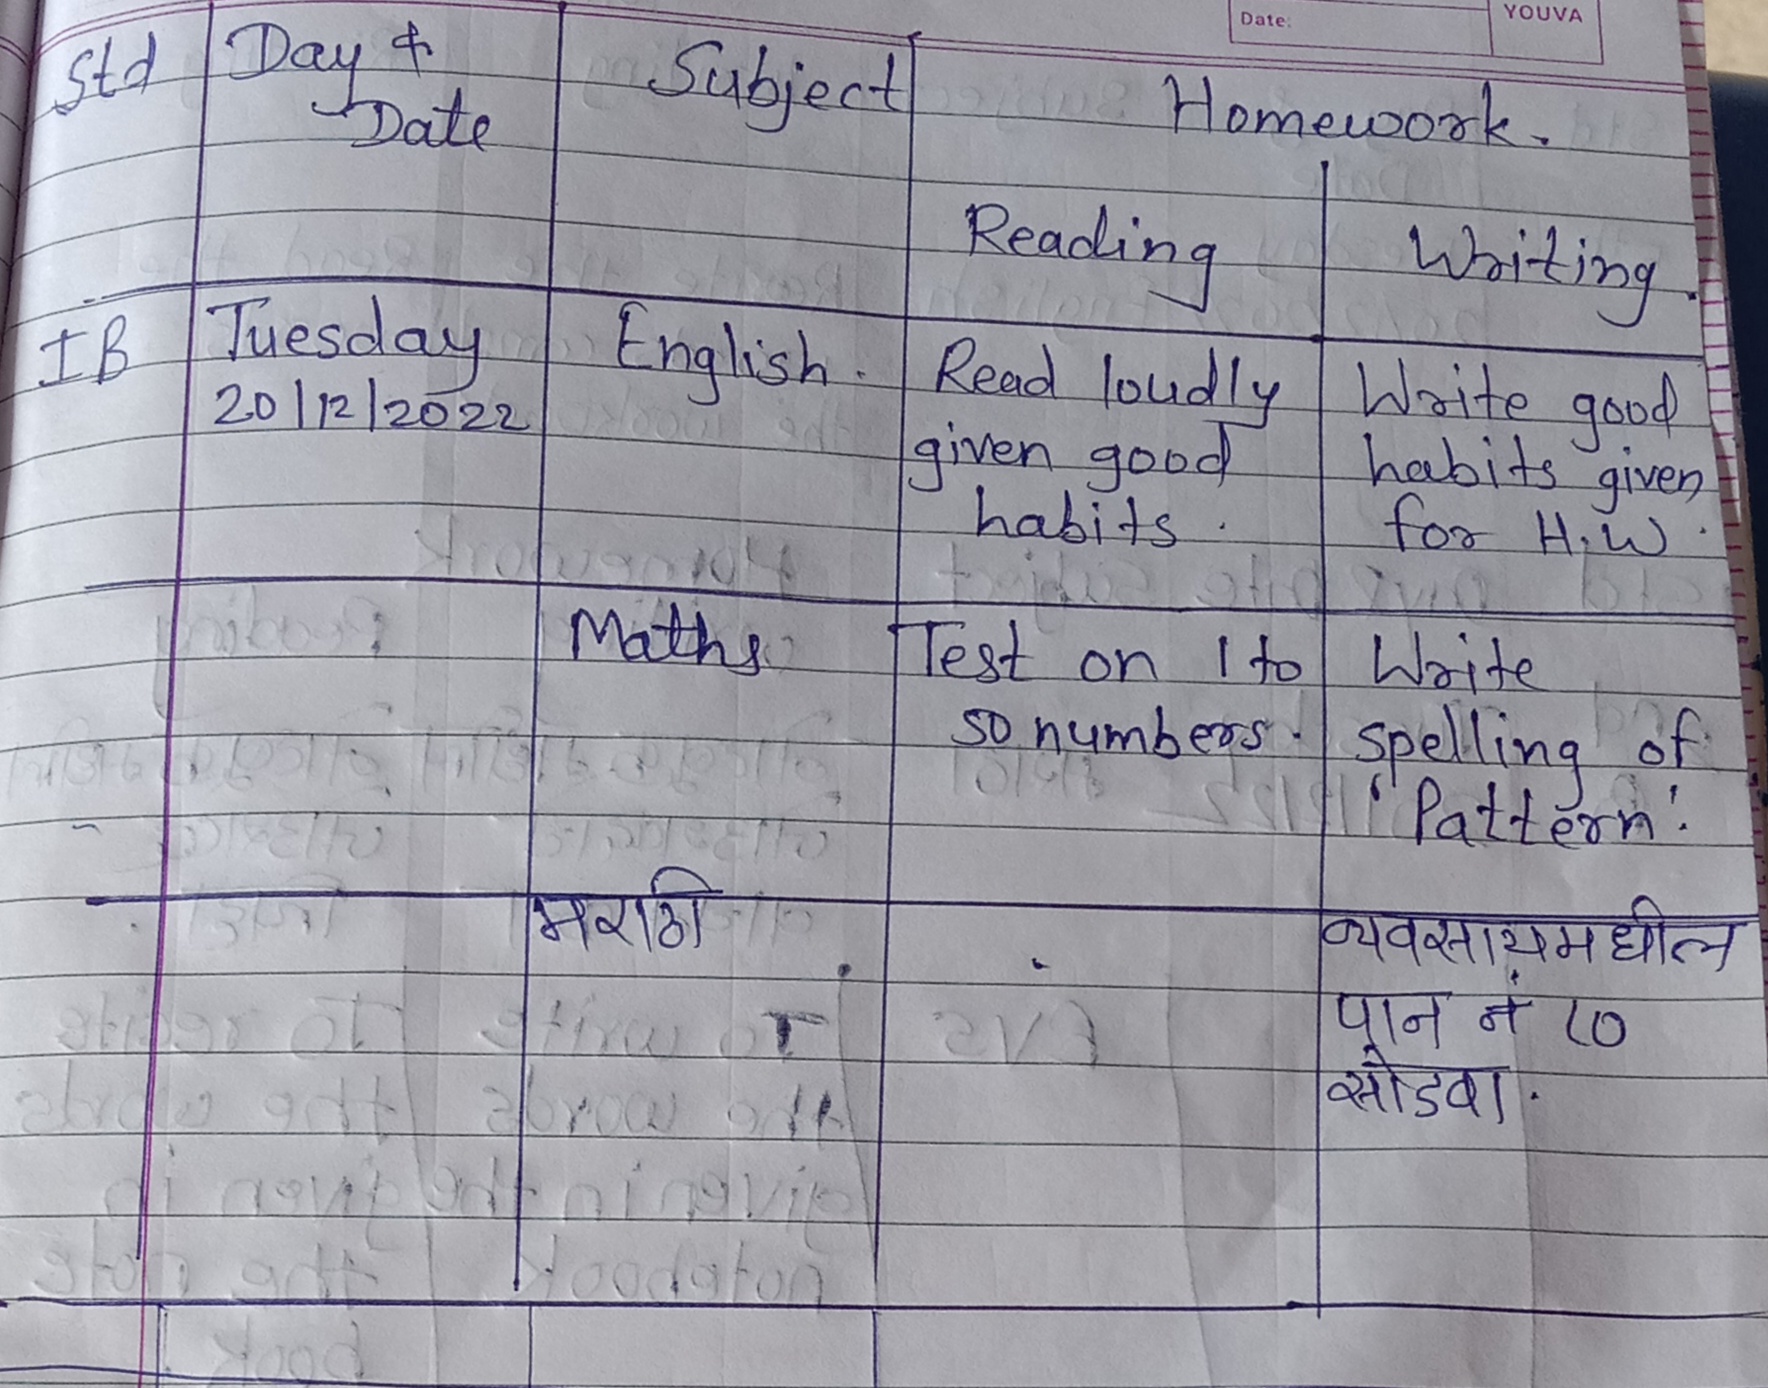 Date:
YOUVA
Std
Day &
Date
Subject
Homework.
Reading
Writing.
IB
Tuesday
20/12/2022
English.
Read loudly
given good
habits.
Write good
habits given
for H.W.
Maths.
Test on 1 to
50 numbers.
Write
spelling of
'Pattern'.
मराठी
व्यवसायमधील
पान नं ८०
सोडवा.